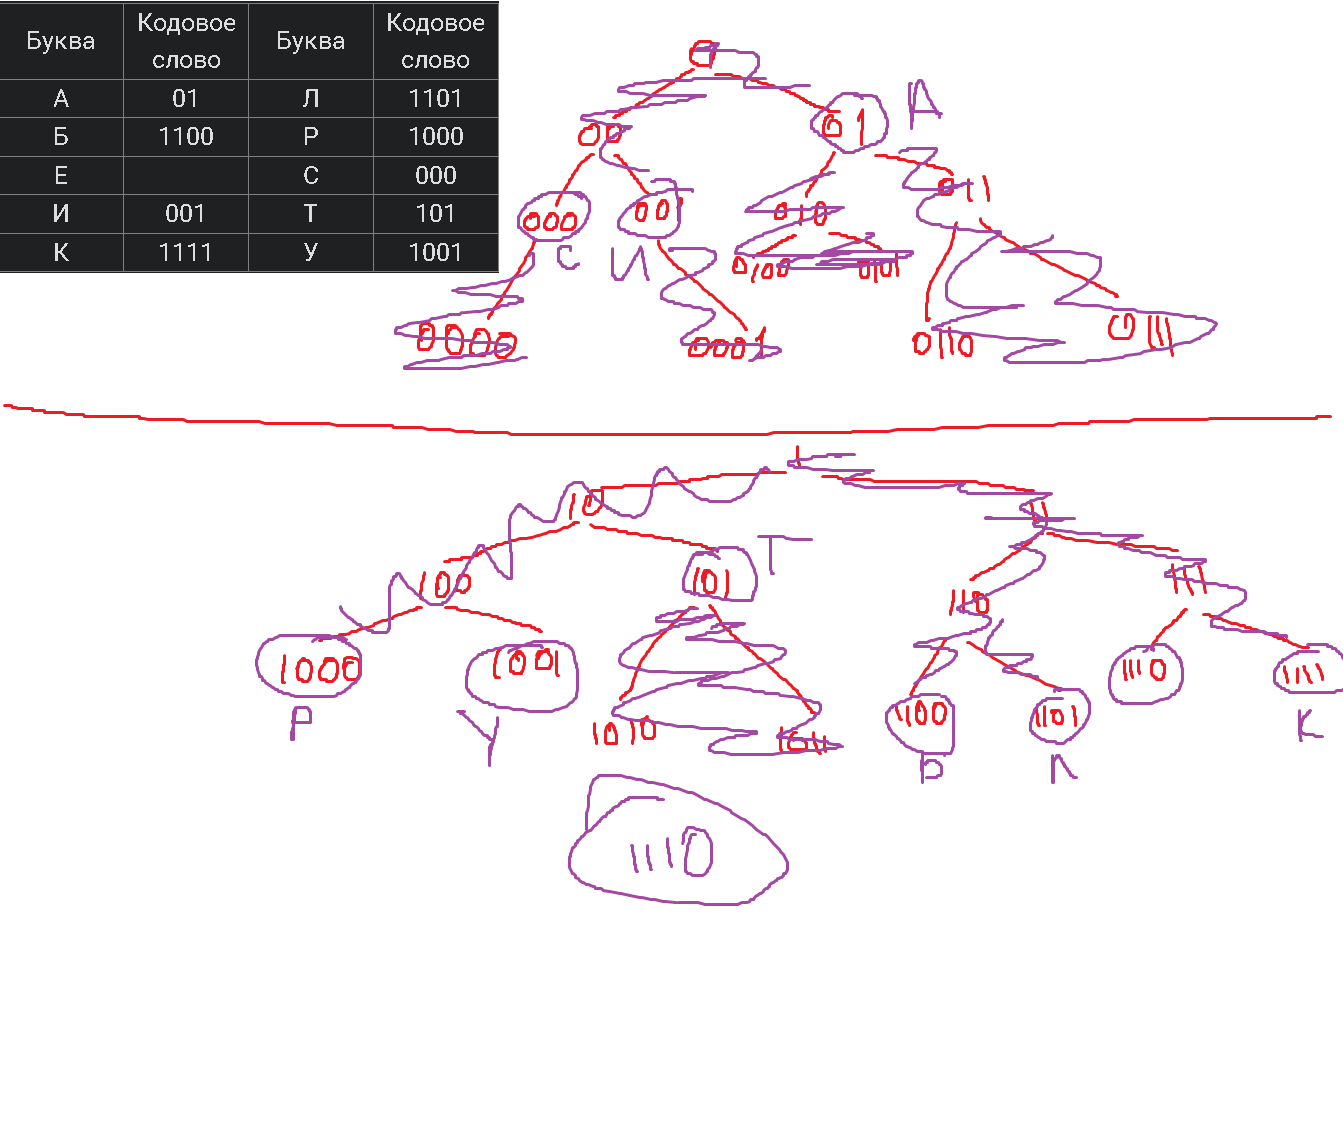 Буква Кодовое слово Буква Кодовое слово
А 01 Л 1101
Б 1100 Р 1000
Е С 000
И 001 Т 101
К 1111 У 1001
0
00 01 А
011
000 001 010
С И
0100 0101
0000 0001 0110 0111
1
10 11
Т
100 101 110 111
1000 1001 1110 1111
Р У 1010 1011 1100 1101 К
Б Л
1110